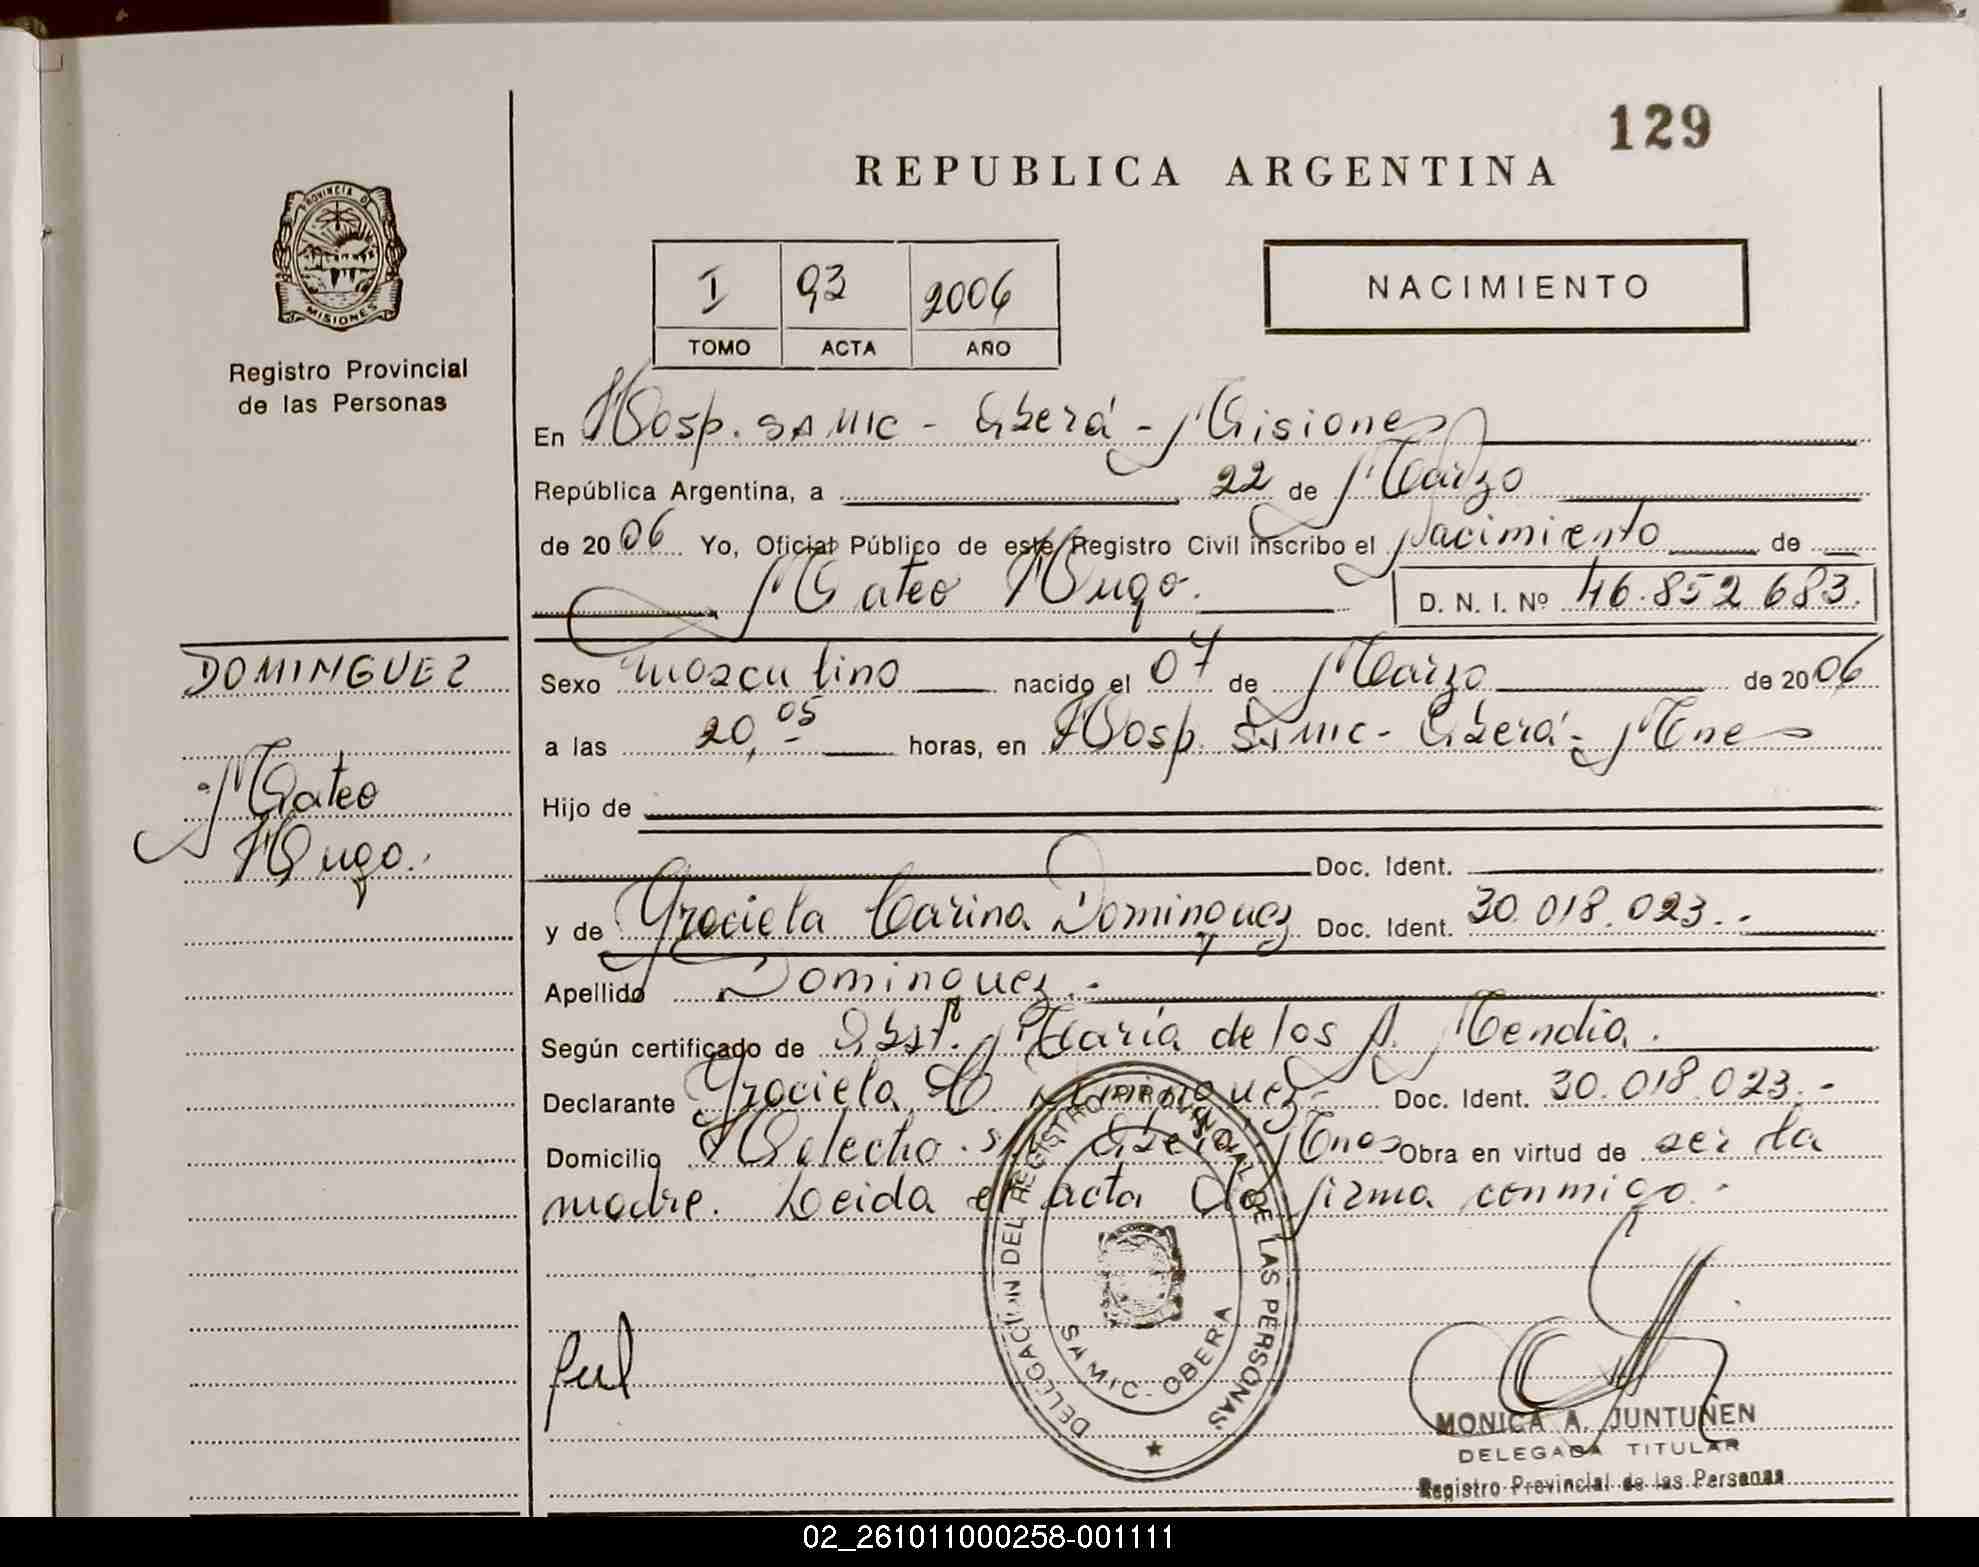 129
REPUBLICA ARGENTINA
PROVINCIA DE
MISIONES
Registro Provincial
de las Personas
I 93 2006
TOMO ACTA AÑO
NACIMIENTO
En Hosp. SAMIC - Oberá - Misiones
República Argentina, a 22 de Marzo
de 2006 Yo, Oficial Público de este Registro Civil inscribo el Nacimiento de
Mateo Hugo. D. N. I. Nº 46.852683.
DOMINGUEZ
Mateo
Hugo.
Sexo Masculino nacido el 07 de Marzo de 2006
a las 20,05 horas, en Hosp. SAMIC - Oberá - Mnes
Hijo de
Doc. Ident.
y de Graciela Carina Dominguez Doc. Ident. 30.018.023.-
Apellido Dominguez.-
Según certificado de Obst. María de los A. Mendia.
Declarante Graciela C Dominguez- Doc. Ident. 30.018.023.-
Domicilio Helecho s/n Oberá Mnes Obra en virtud de ser la
madre. Leida el acta la firma conmigo.-
DELEGACION DEL REGISTRO PROVINCIAL DE LAS PERSONAS
SAMIC - OBERA
MONICA A. JUNTUNEN
DELEGADA TITULAR
Registro Provincial de las Personas
02_261011000258-001111